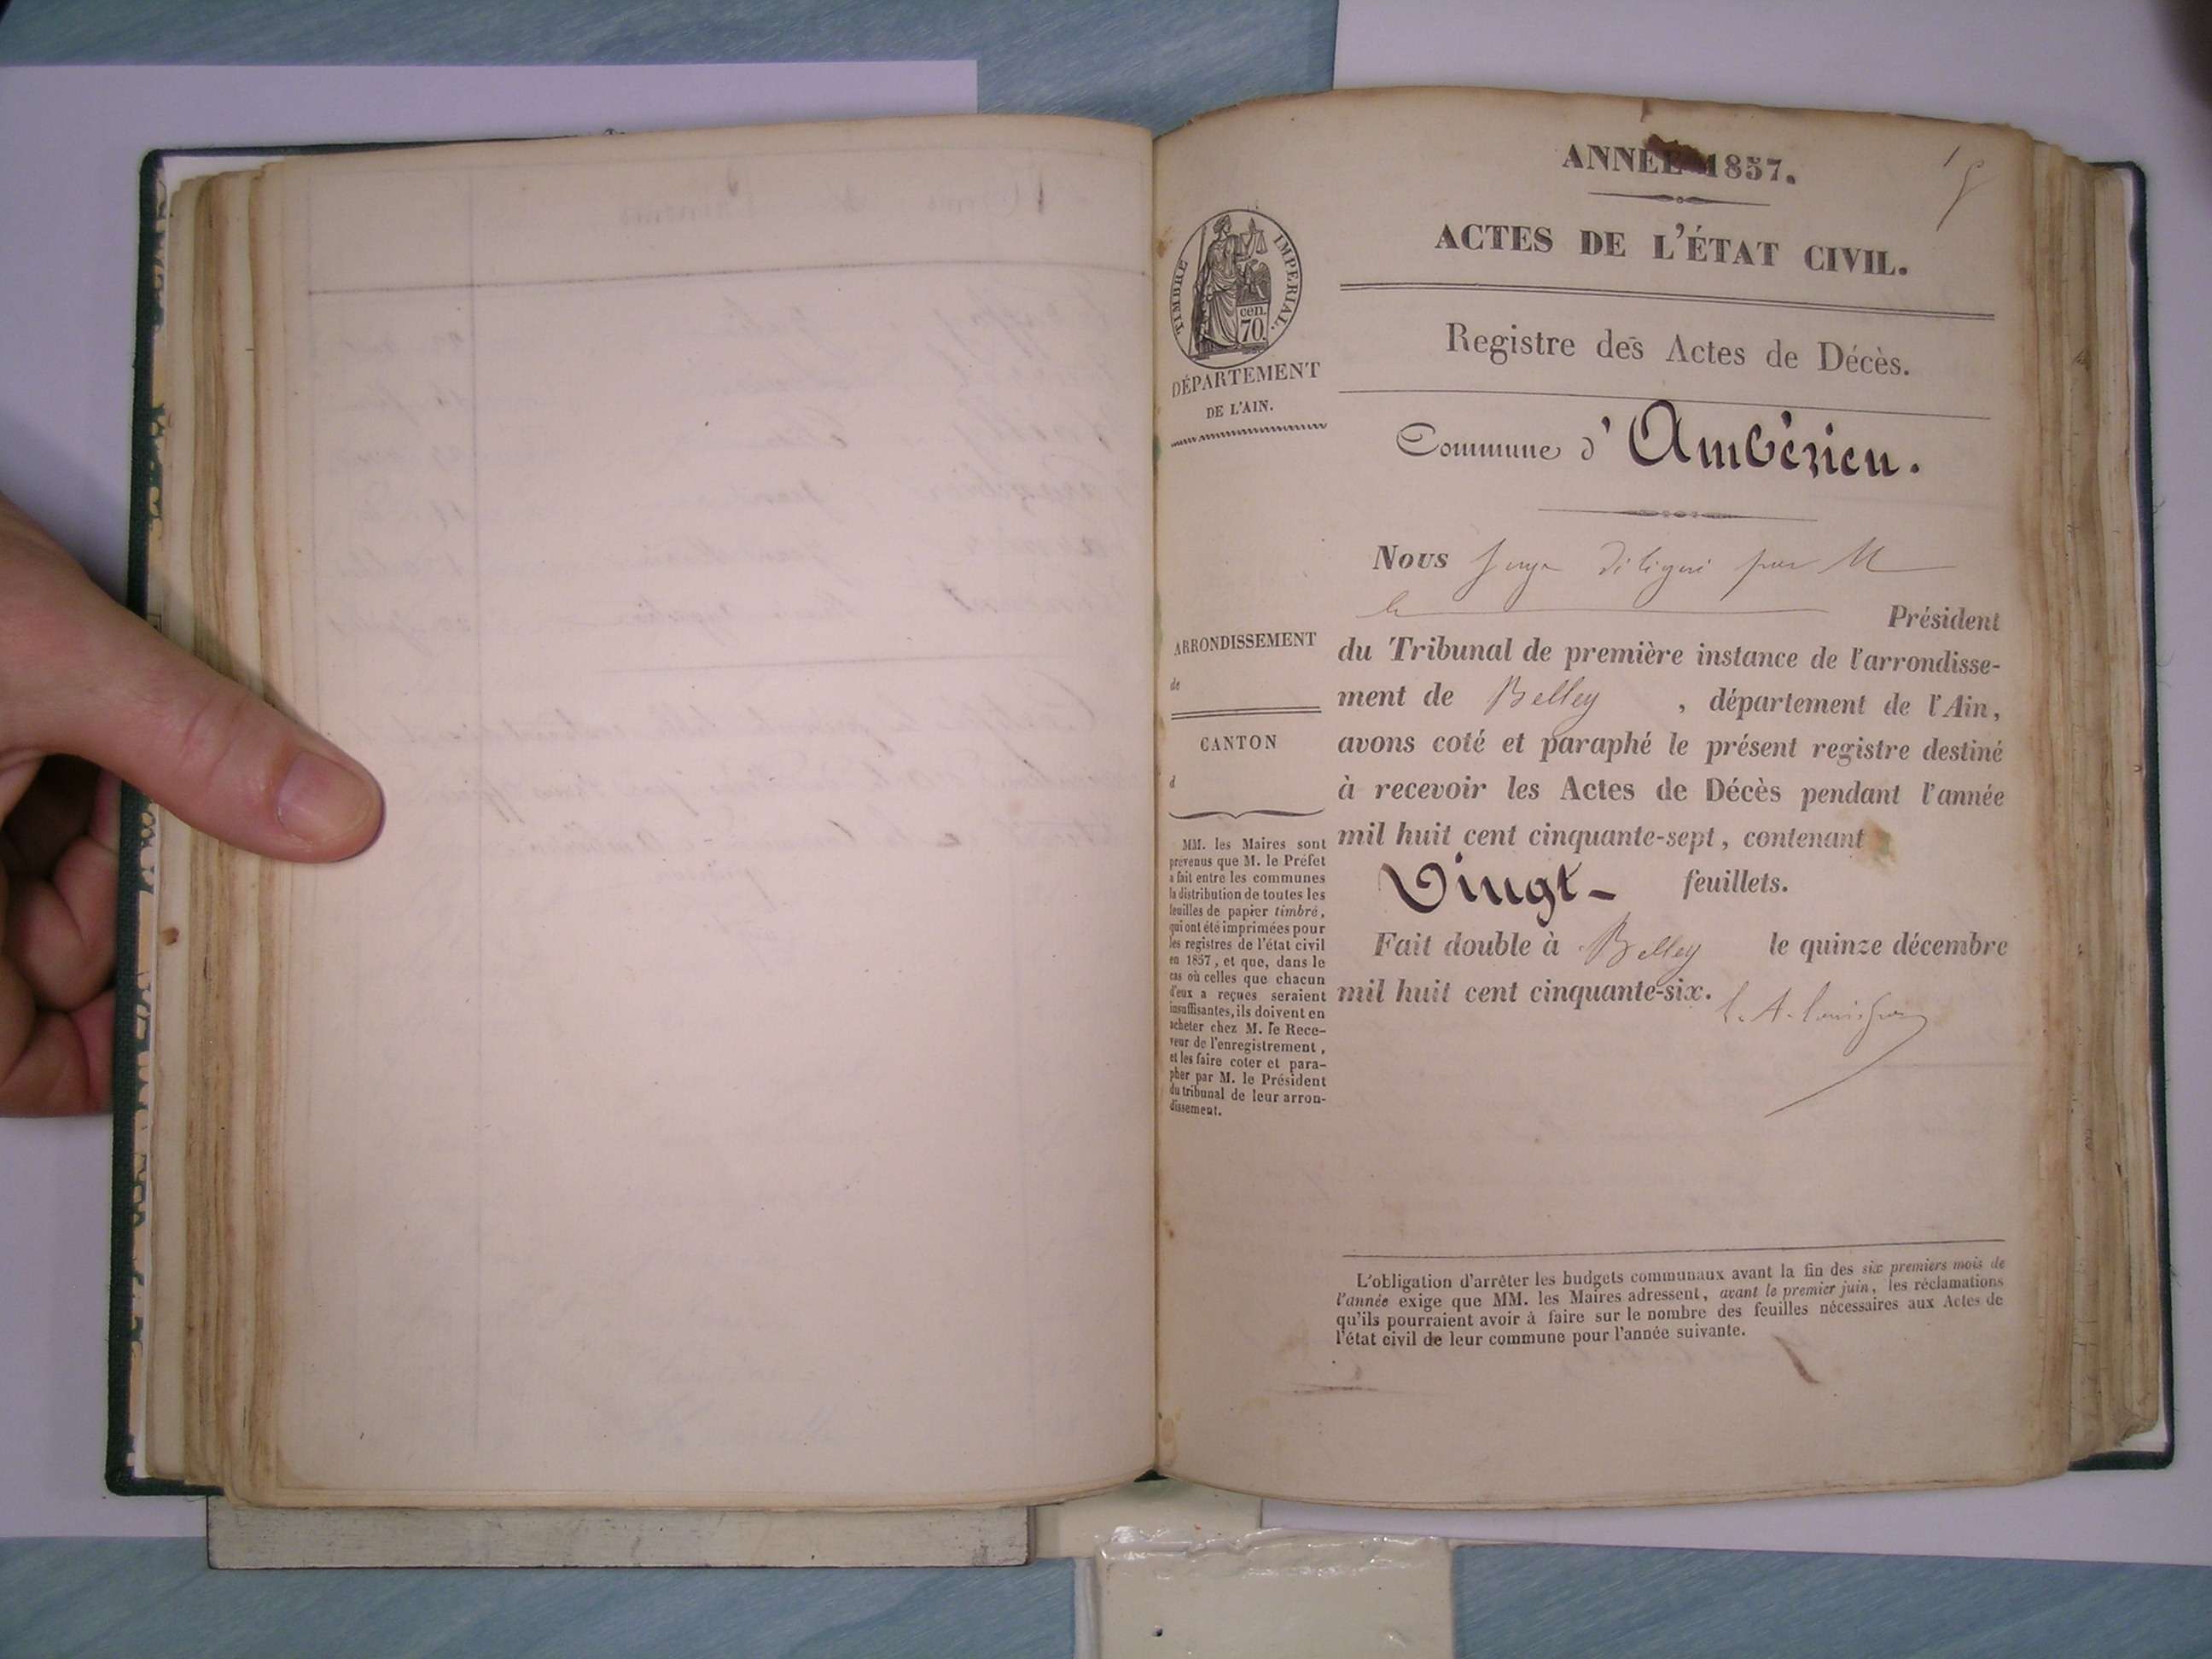 ANNÉE 1857.
1
ACTES DE L'ÉTAT CIVIL.
TIMBRE IMPERIAL.
cen.
70.
Registre des Actes de Décès.
DÉPARTEMENT
DE L'AIN.
Commune d'Ambérieu.
Nous Juge délégué par M
le Président
ARRONDISSEMENT
de
CANTON
d
du Tribunal de première instance de l'arrondisse-
ment de Belley , département de l'Ain,
avons coté et paraphé le présent registre destiné
à recevoir les Actes de Décès pendant l'année
mil huit cent cinquante-sept, contenant
Vingt- feuillets.
Fait double à Belley le quinze décembre
mil huit cent cinquante-six.
MM. les Maires sont
prévenus que M. le Préfet
a fait entre les communes
la distribution de toutes les
feuilles de papier timbré,
qui ont été imprimées pour
les registres de l'état civil
en 1857, et que, dans le
cas où celles que chacun
d'eux a reçues seraient
insuffisantes, ils doivent en
acheter chez M. le Rece-
veur de l'enregistrement,
et les faire coter et para-
pher par M. le Président
du tribunal de leur arron-
dissement.
L'obligation d'arrêter les budgets communaux avant la fin des six premiers mois de
l'année exige que MM. les Maires adressent, avant le premier juin, les réclamations
qu'ils pourraient avoir à faire sur le nombre des feuilles nécessaires aux Actes de
l'état civil de leur commune pour l'année suivante.